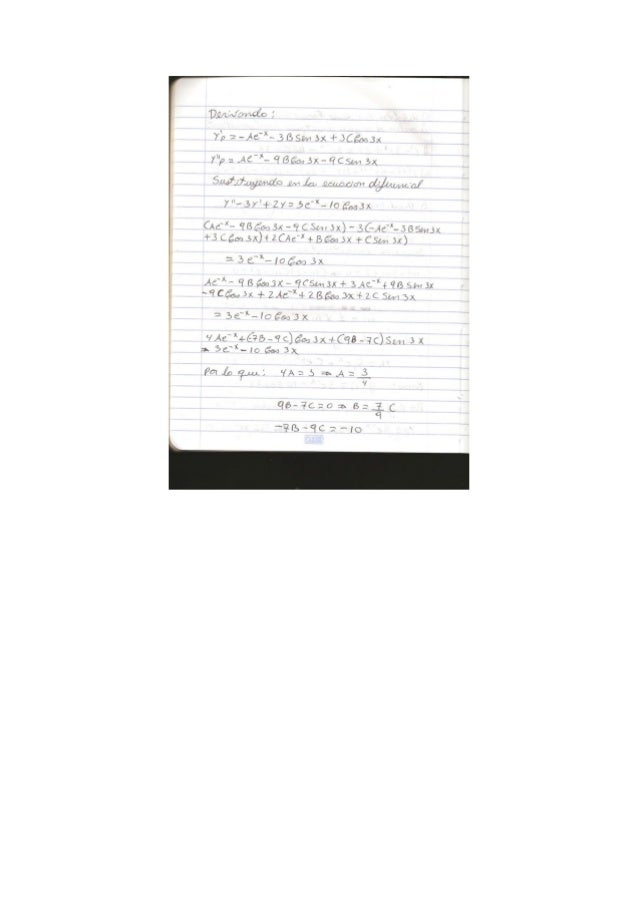 Derivando:
Y'p = -Ae^-x - 3B Sen 3x + 3C Cos 3x
Y''p = Ae^-x - 9B Cos 3x - 9C Sen 3x
Sustituyendo en la ecuacion diferencial
Y'' - 3Y' + 2Y = 3e^-x - 10 Cos 3x
(Ae^-x - 9B Cos 3x - 9C Sen 3x) - 3(-Ae^-x - 3B Sen 3x
+ 3C Cos 3x) + 2(Ae^-x + B Cos 3x + C Sen 3x)
= 3e^-x - 10 Cos 3x
Ae^-x - 9B Cos 3x - 9C Sen 3x + 3Ae^-x + 9B Sen 3x
- 9C Cos 3x + 2Ae^-x + 2B Cos 3x + 2C Sen 3x
= 3e^-x - 10 Cos 3x
4Ae^-x + (-7B - 9C) Cos 3x + (9B - 7C) Sen 3x
= 3e^-x - 10 Cos 3x
Por lo que: 4A = 3 ⇒ A = 3/4
9B - 7C = 0 ⇒ B = 7/9 C
-7B - 9C = -10